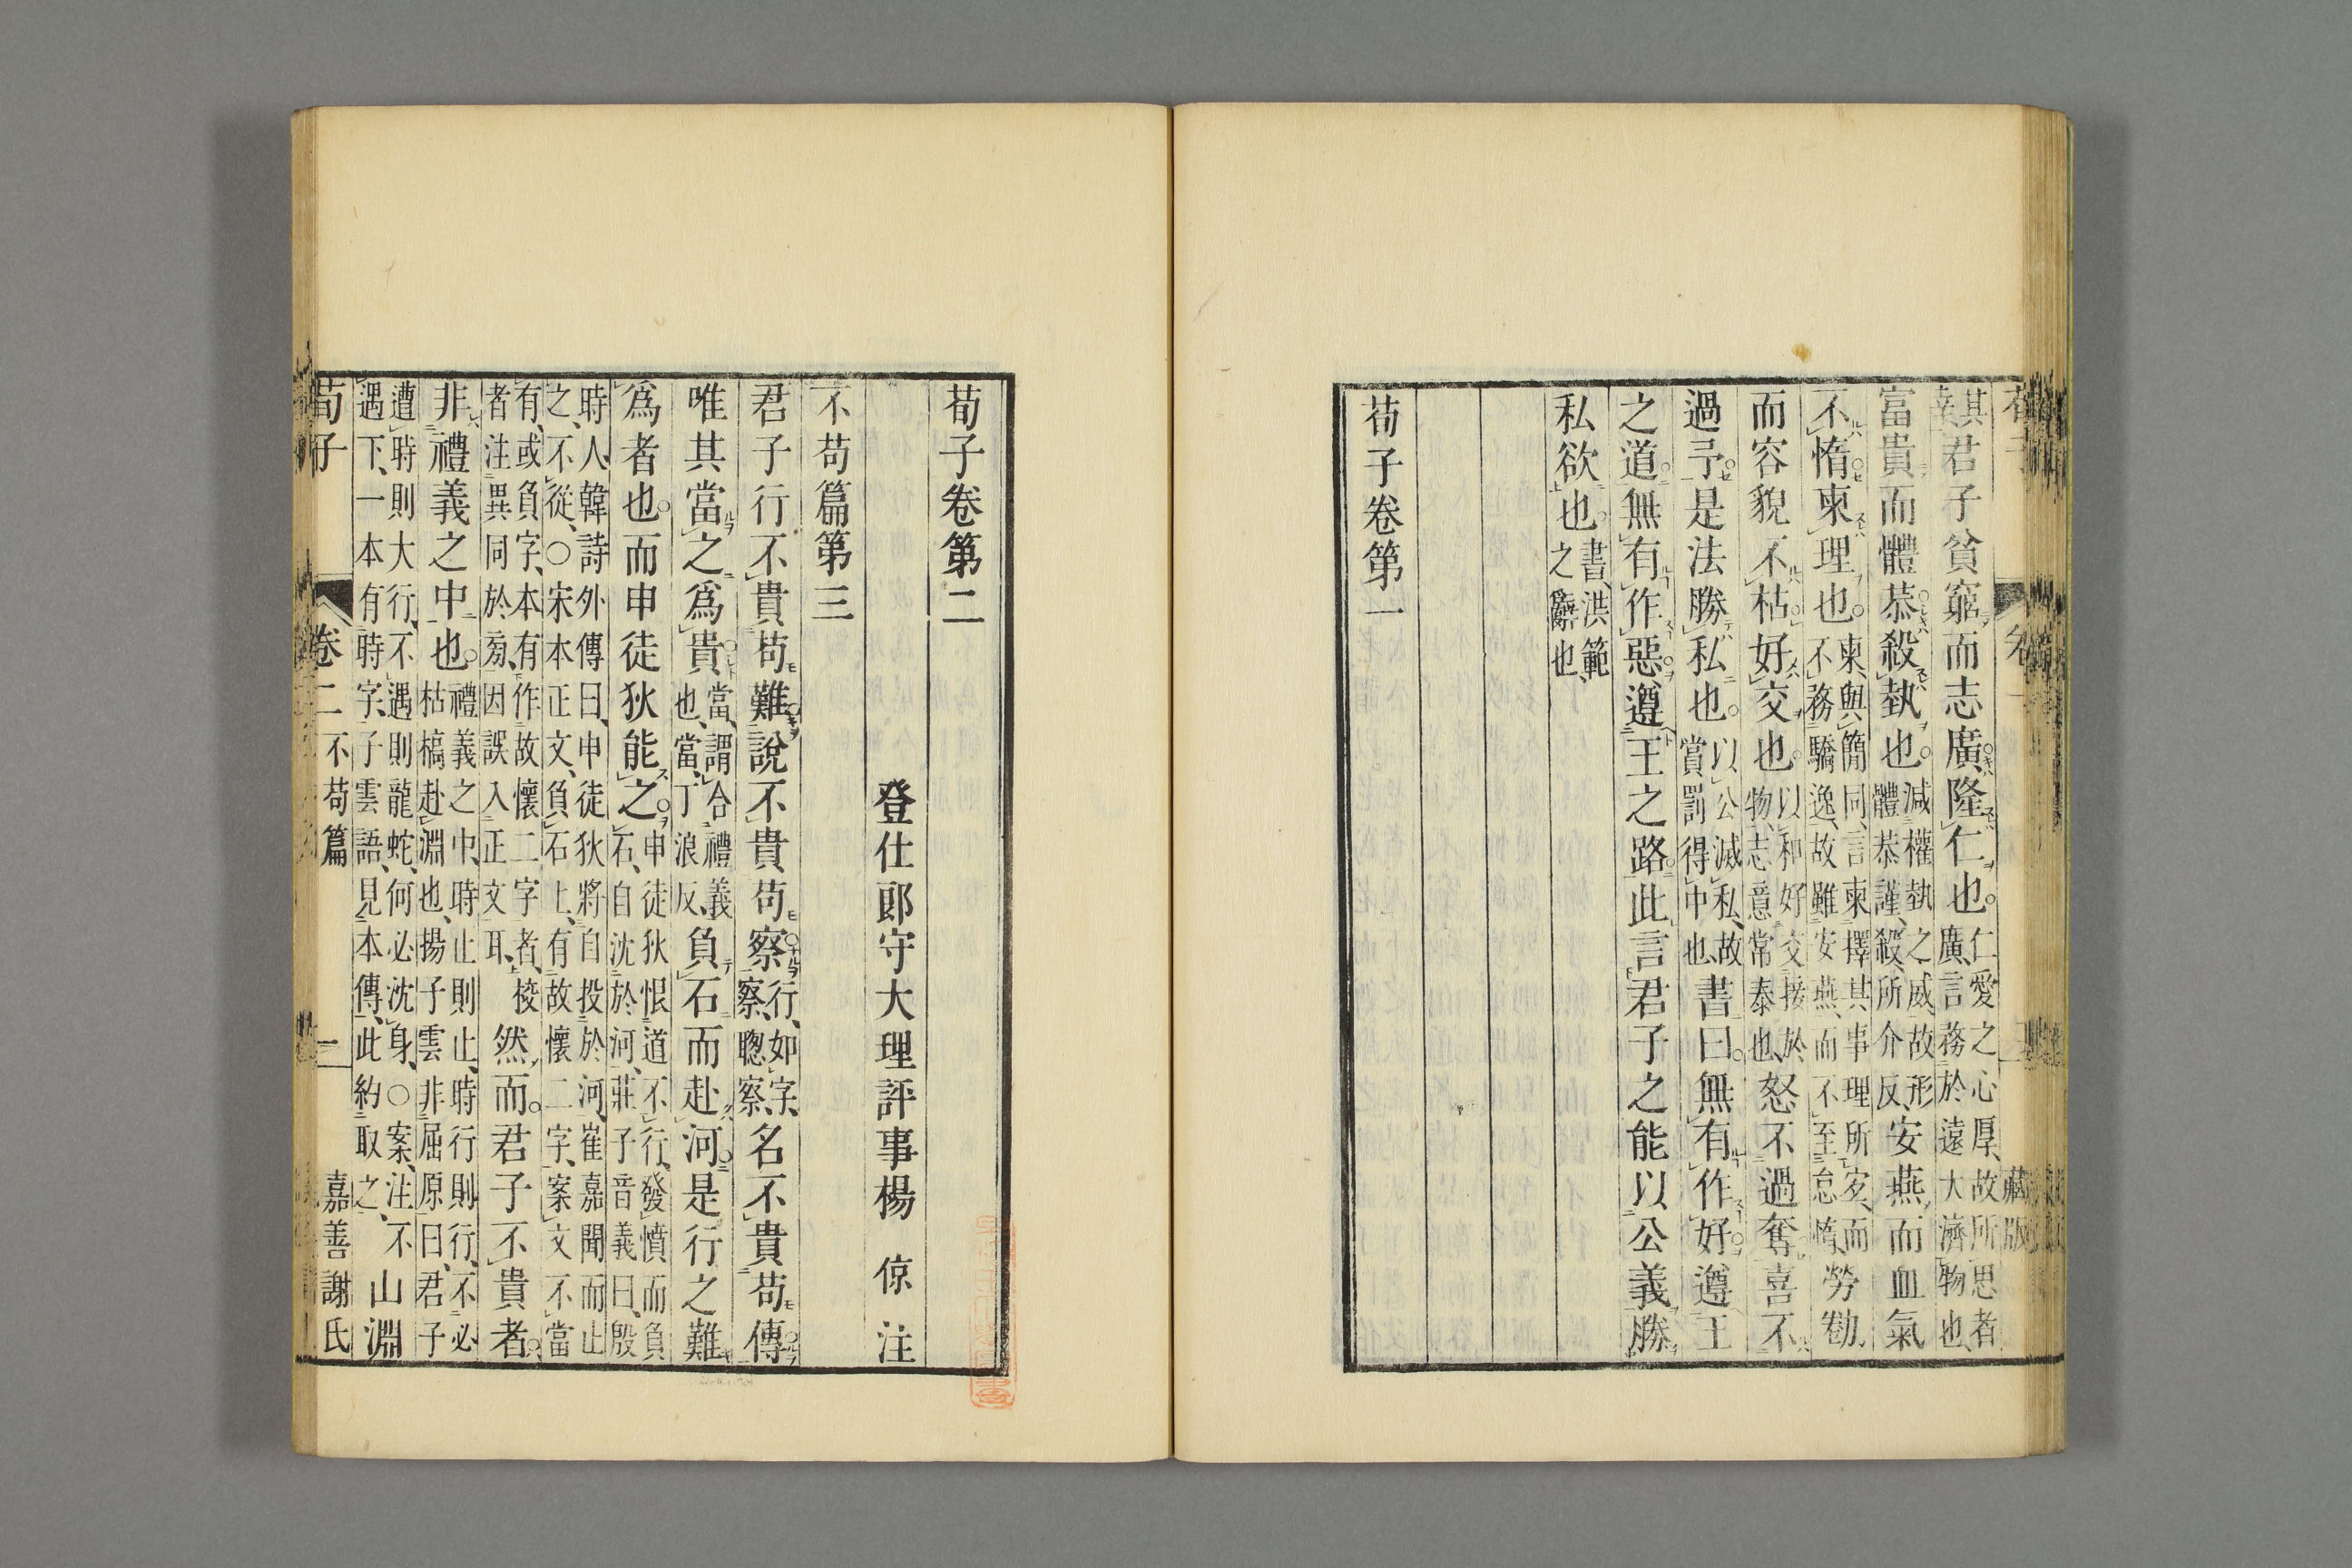 其
埶君子貧窮而志廣隆仁也仁愛之心厚故所思者廣言務於遠大濟物也
富貴而體恭殺埶也減權埶之威故形體恭謹殺所介反安燕而血氣
不惰柬理也柬與簡同言柬擇其事理所宜而不務驕逸故雖安燕而不至怠惰勞勌
而容貌不枯好交也以和好交接於物志意常泰也怒不過奪喜不
過予是法勝私也以公滅私故賞罰得中也書曰無有作好遵王
之道無有作惡遵王之路此言君子之能以公義勝
私欲也書洪範之辭也
荀子卷第一
藏版
荀子卷第二
登仕郎守大理評事楊 倞 注
不苟篇第三
君子行不貴苟難說不貴苟察行如字察聰察名不貴苟傳
唯其當之爲貴當謂合禮義也當丁浪反負石而赴河是行之難
爲者也而申徒狄能之申徒狄恨道不行發憤而負石自沈於河莊子音義曰殷
時人韓詩外傳曰申徒狄將自投於河崔嘉聞而止之不從○宋本正文負石上有故懷二字案文不當
有或負字本有作故懷二字者校者注異同於旁因誤入正文耳然而君子不貴者
非禮義之中也禮義之中時止則止時行則行不必枯槁赴淵也揚子雲非屈原曰君子
遭時則大行不遇則龍蛇何必沈身○案注不遇下一本有時字子雲語見本傳此約取之山淵
荀子 卷二 不苟篇 二 嘉善謝氏